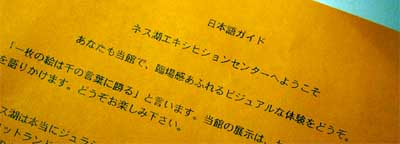 日本語ガイド
ネス湖エキシビションセンターへようこそ
あなたも当館で、臨場感あふれるビジュアルな体験をどうぞ。
「一枚の絵は千の言葉に勝る」と言います。当館の展示は、
を語りかけます。どうぞお楽しみ下さい。
ス湖は本当にジュラ
ットラン